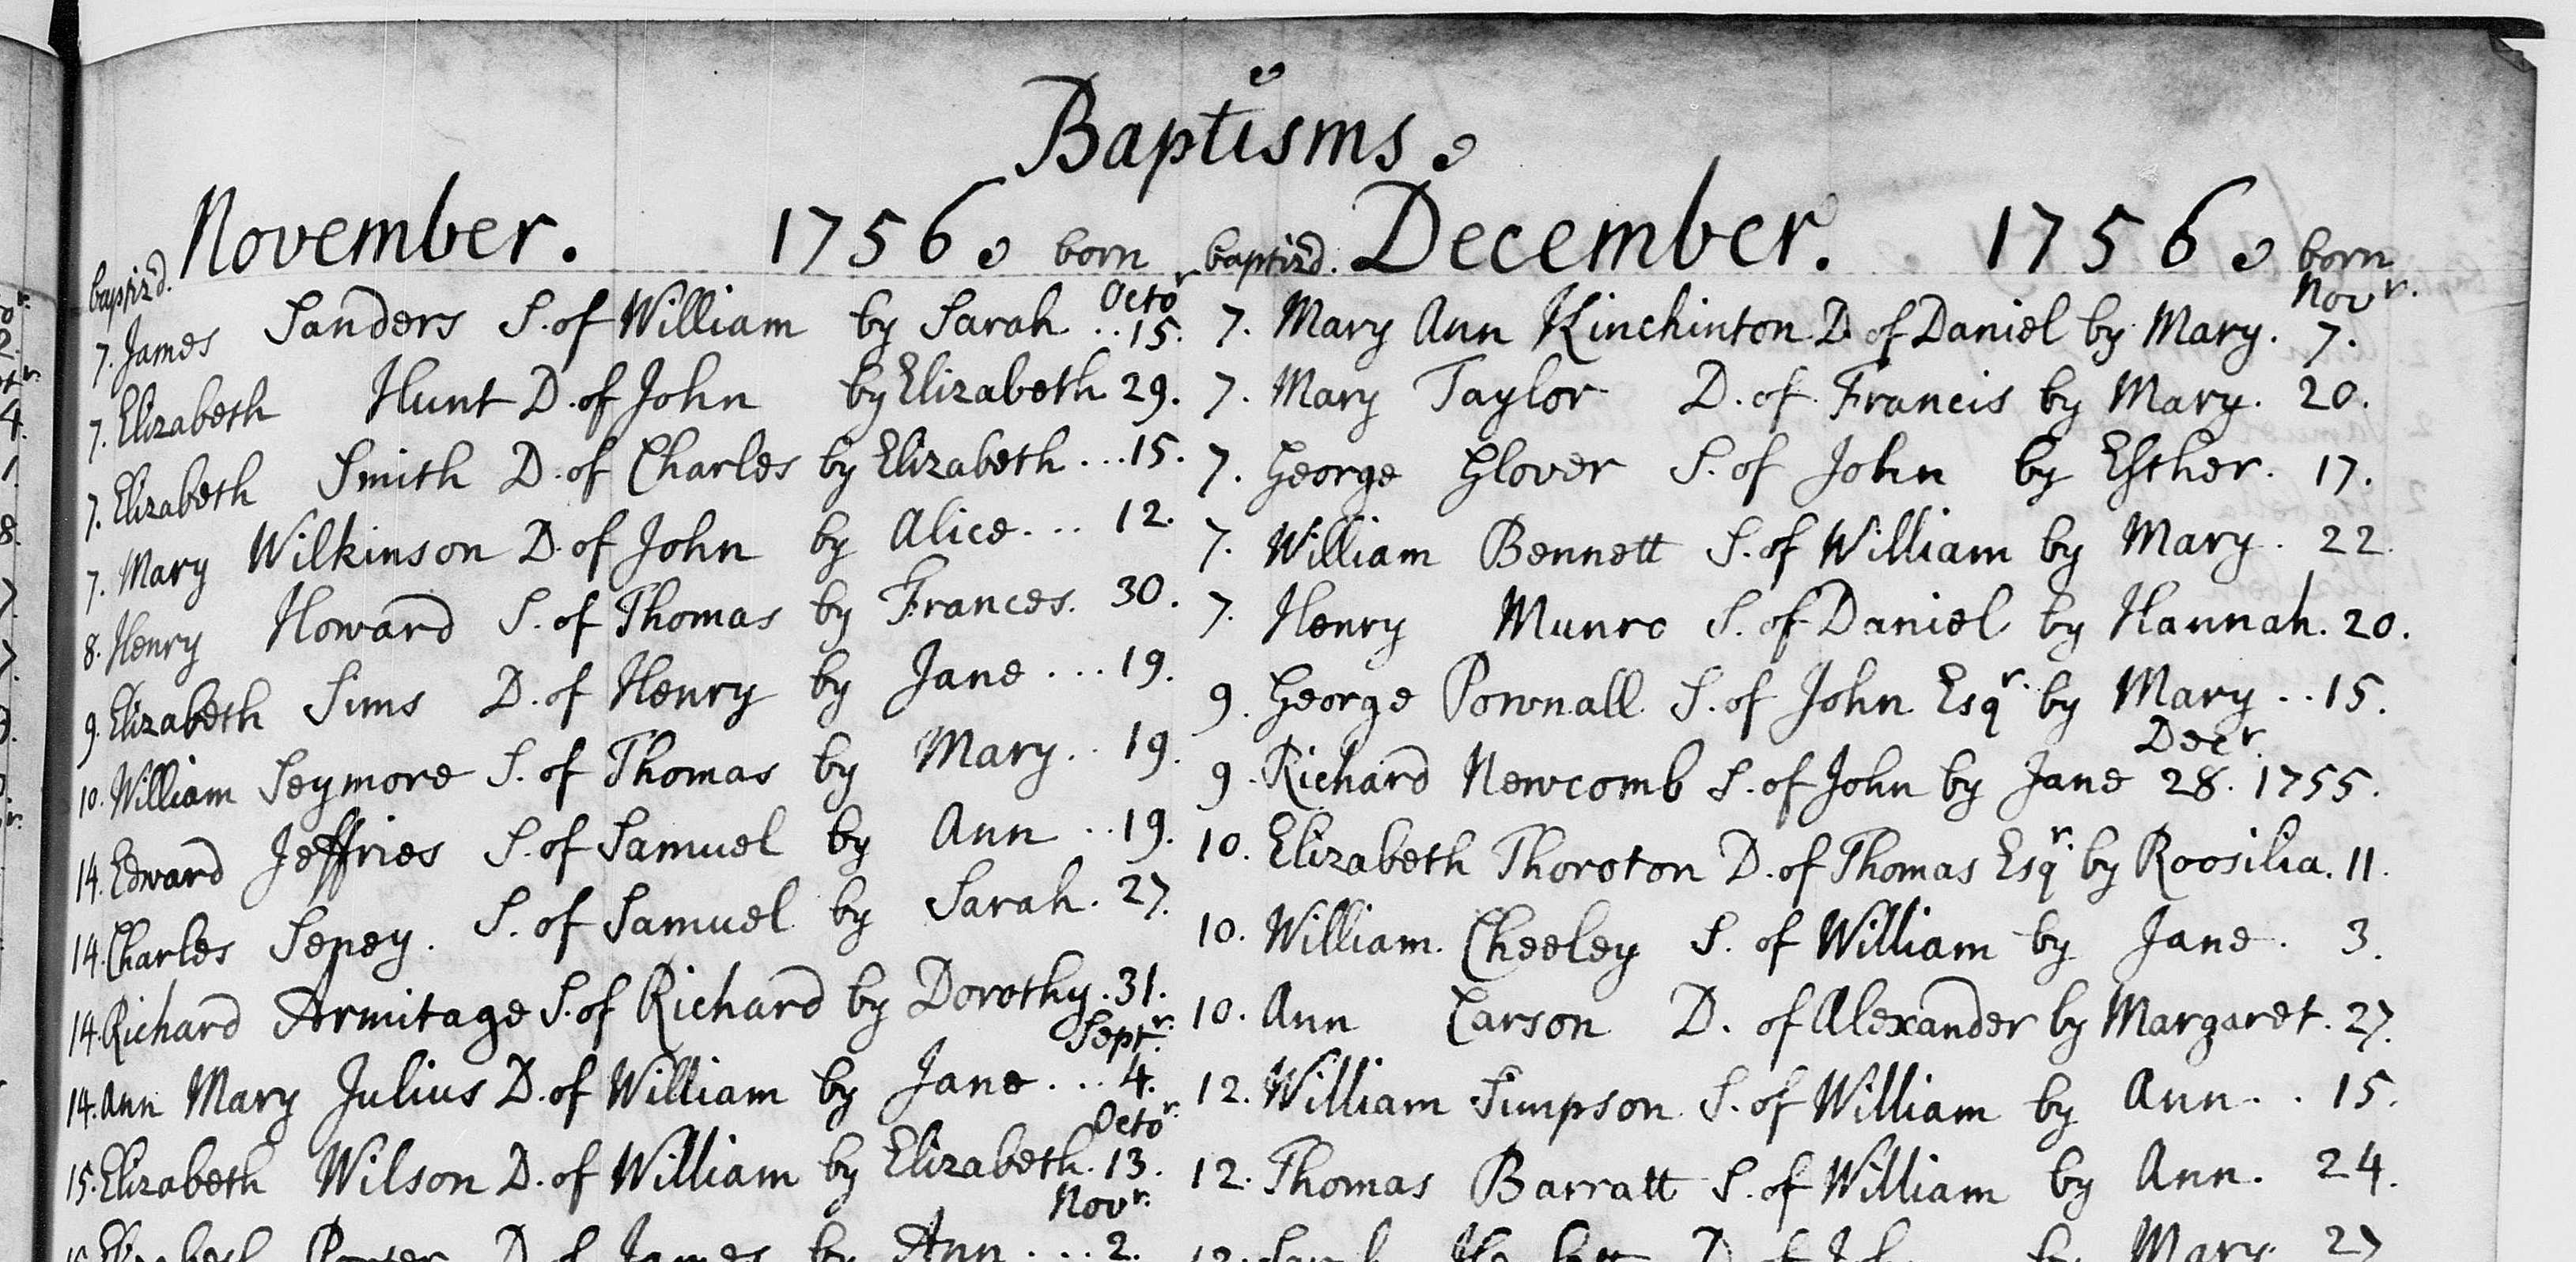 Baptisms.
November. 1756. born
baptiz'd.
7. James Sanders S. of William by Sarah .. Octor 15.
7. Elizabeth Hunt D. of John by Elizabeth 29.
7. Elizabeth Smith D. of Charles by Elizabeth ... 15.
7. Mary Wilkinson D. of John by Alice ... 12.
8. Henry Howard S. of Thomas by Frances. 30.
9. Elizabeth Sims D. of Henry by Jane ... 19.
10. William Seymore S. of Thomas by Mary .. 19.
14. Edward Jeffries S. of Samuel by Ann .. 19.
14. Charles Seney. S. of Samuel by Sarah. 27.
14. Richard Armitage S. of Richard by Dorothy. 31.
Septr.
14. Ann Mary Julius D. of William by Jane ... 4.
Octor.
15. Elizabeth Wilson D. of William by Elizabeth. 13.
Novr.
15. Elizabeth Porter D. of James by Ann ... 2.
baptiz'd. December. 1756. born
Novr.
7. Mary Ann Kinchinton D. of Daniel by Mary. 7.
7. Mary Taylor D. of Francis by Mary. 20.
7. George Glover S. of John by Esther. 17.
7. William Bennett S. of William by Mary. 22.
7. Henry Munro S. of Daniel by Hannah. 20.
9. George Pownall S. of John Esqr. by Mary .. 15.
Decr.
9. Richard Newcomb S. of John by Jane 28. 1755.
10. Elizabeth Thoroton D. of Thomas Esqr. by Roosilia. 11.
10. William. Cheeley S. of William by Jane. 3.
10. Ann Carson D. of Alexander by Margaret. 27.
12. William Simpson S. of William by Ann .. 15.
12. Thomas Barratt S. of William by Ann. 24.
12. Sarah D. of by Mary. 27